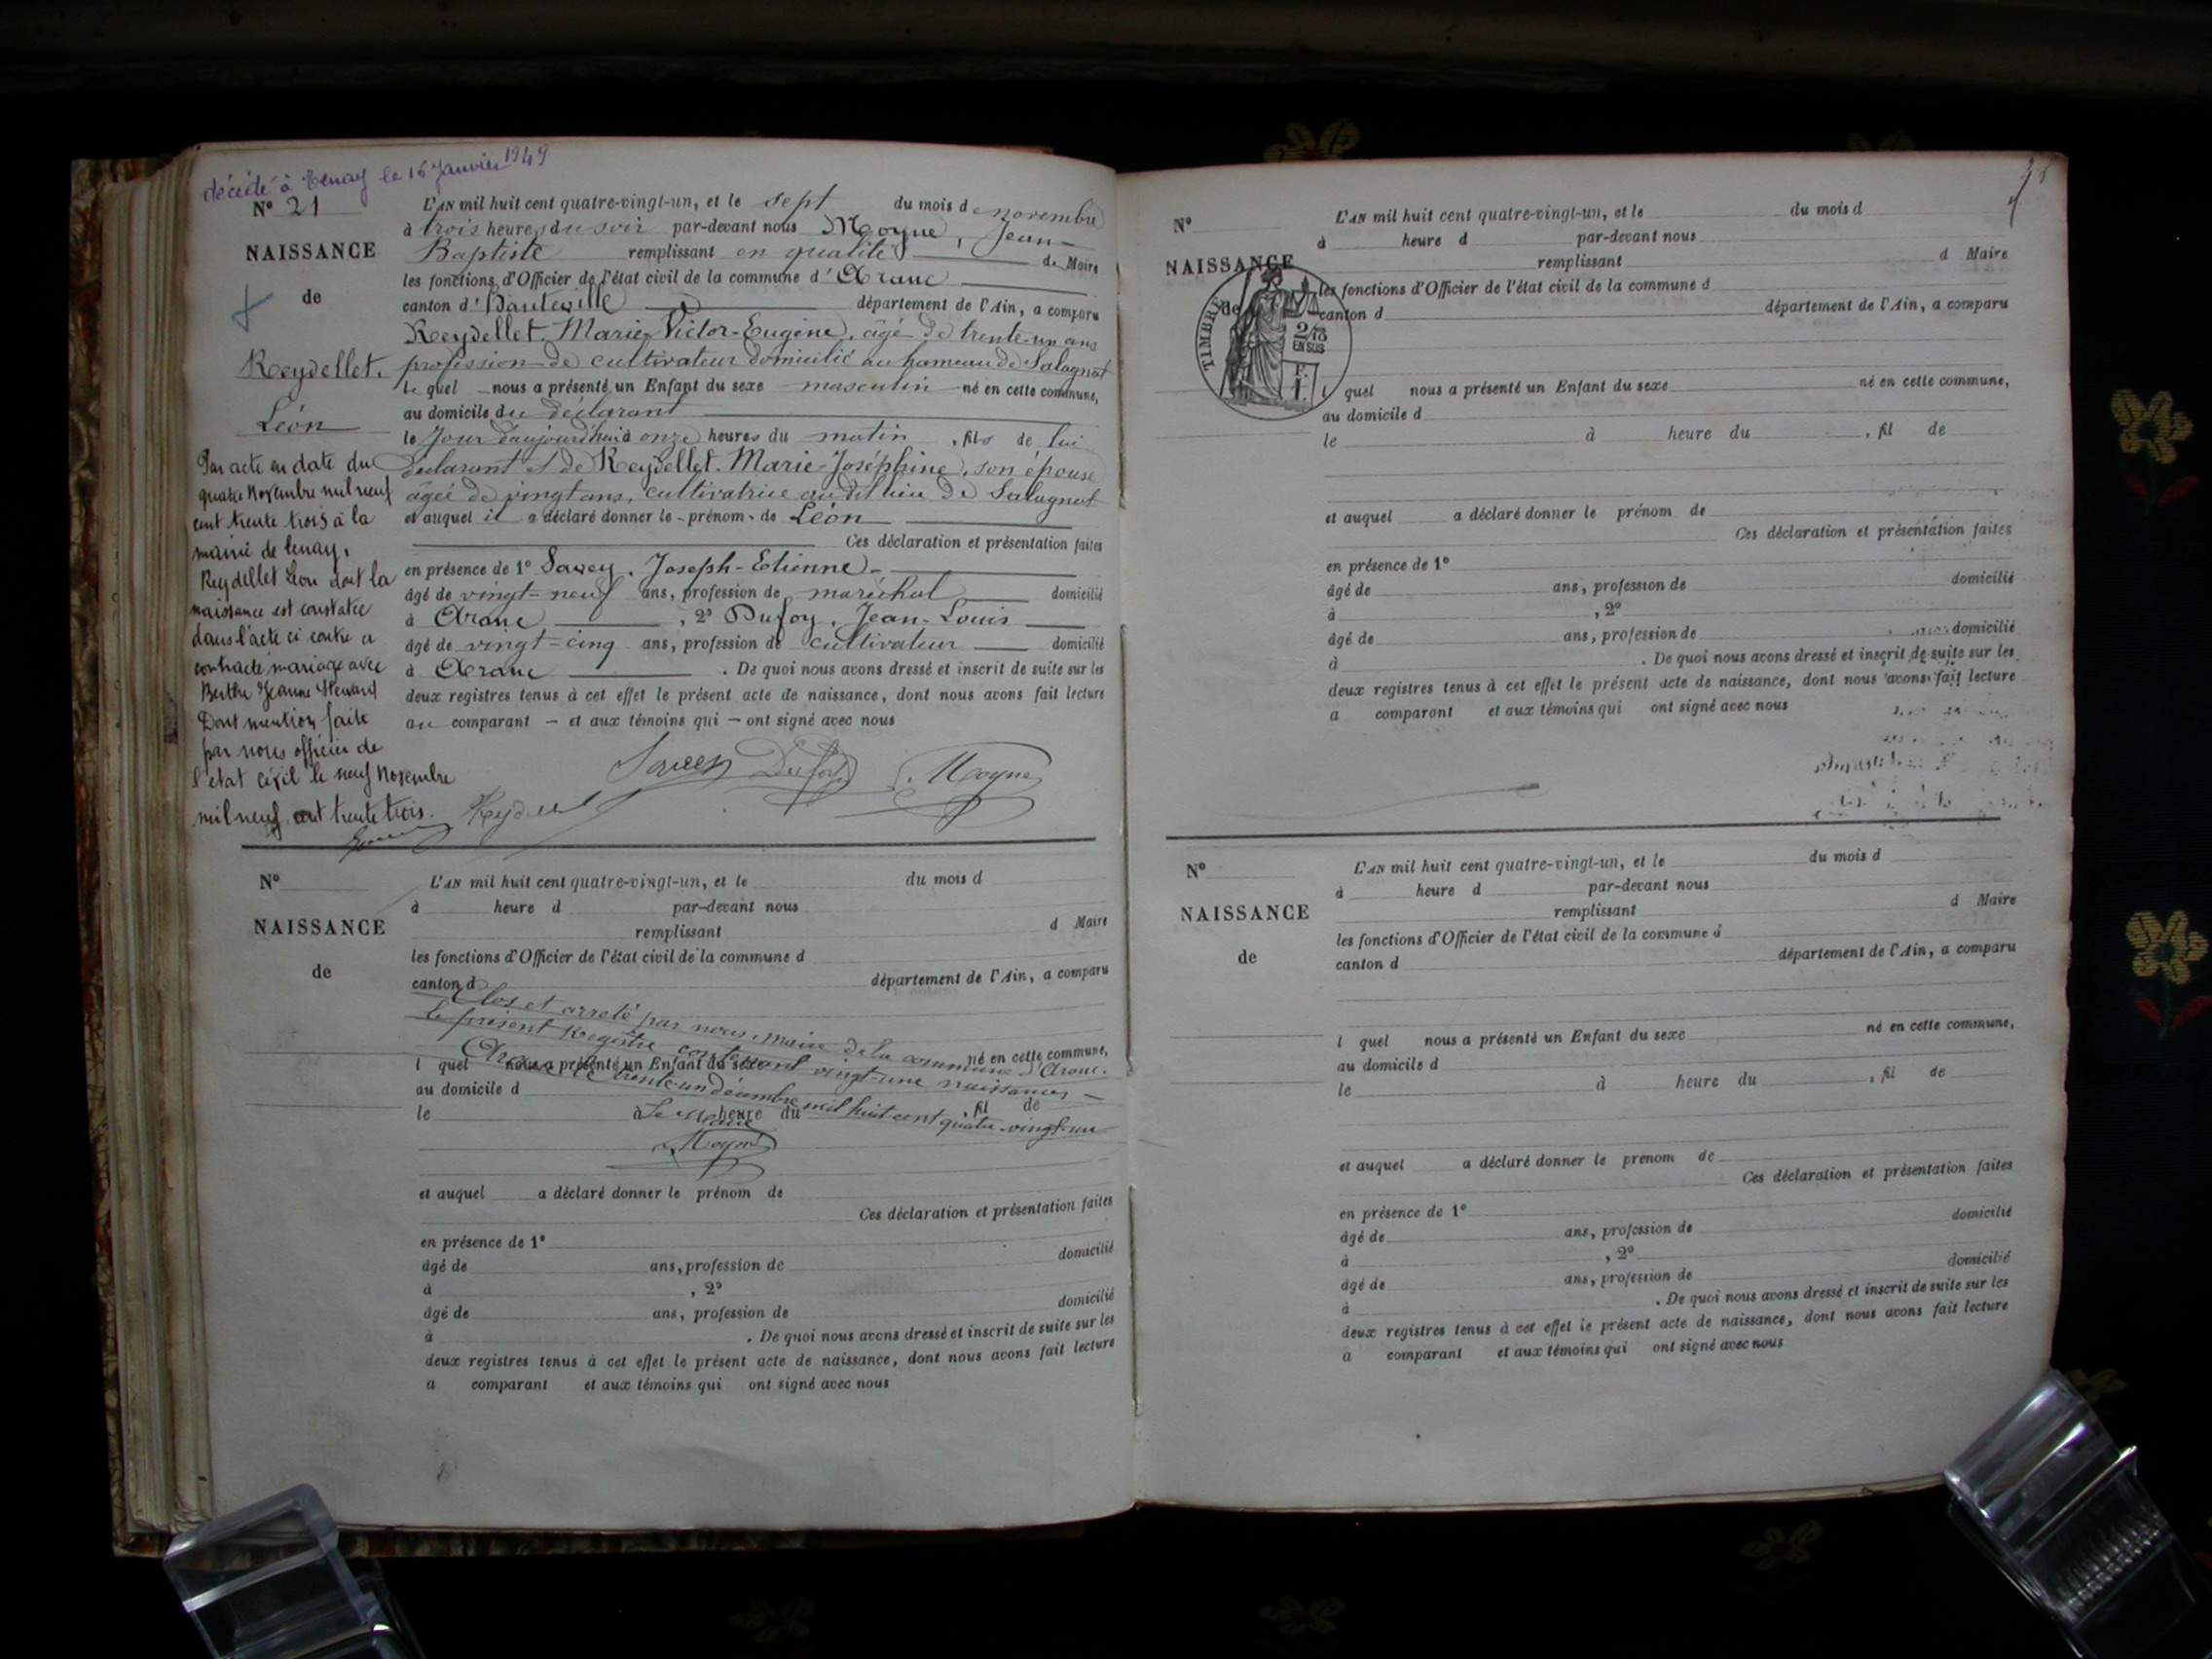 décédé à Tenay le 16 Janvier 1949
N° 21
NAISSANCE
de
Reydellet.
Léon
Par acte en date du
quatre Novembre mil neuf
cent trente trois à la
mairie de Tenay,
Reydellet Léon dont la
naissance est constatée
dans l'acte ci contre a
contracté mariage avec
Berthe Jeanne
Dont mention faite
par nous officier de
l'état civil le neuf Novembre
mil neuf cent trente trois.
L'AN mil huit cent quatre-vingt-un, et le sept du mois de novembre
à trois heures du soir par-devant nous Moyne, Jean-
Baptiste remplissant en qualité de Maire
les fonctions d'Officier de l'état civil de la commune d'Aranc
canton d'Hauteville département de l'Ain, a comparu
Reydellet. Marie-Victor-Eugène, âgé de trente-un ans
profession de cultivateur domicilié au hameau de Salagnat
lequel nous a présenté un Enfant du sexe masculin né en cette commune,
au domicile du déclarant
le jour d'aujourd'hui à onze heures du matin, fils de lui
déclarant et de Reydellet. Marie-Joséphine, son épouse
âgée de vingt ans, cultivatrice audit lieu de Salagnat
et auquel il a déclaré donner le prénom de Léon
Ces déclaration et présentation faites
en présence de 1° Savey, Joseph-Etienne
âgé de vingt-neuf ans, profession de maréchal domicilié
à Aranc, 2° Dufour, Jean-Louis
âgé de vingt-cinq ans, profession de cultivateur domicilié
à Aranc. De quoi nous avons dressé et inscrit de suite sur les
deux registres tenus à cet effet le présent acte de naissance, dont nous avons fait lecture
au comparant et aux témoins qui ont signé avec nous
Savey Dufour Moyne
Reydellet
N°
NAISSANCE
de
L'AN mil huit cent quatre-vingt-un, et le du mois d
à heure d par-devant nous
remplissant d Maire
les fonctions d'Officier de l'état civil de la commune d
canton d département de l'Ain, a comparu
Clos et arrêté par nous, maire de la commune d'Aranc.
le présent Registre contenant vingt-une naissances
Aranc le trente-un décembre mil huit cent quatre-vingt-un
Le Maire
Moyne
l quel nous a présenté un Enfant du sexe né en cette commune,
au domicile d
le à heure du , fil de
et auquel a déclaré donner le prénom de
Ces déclaration et présentation faites
en présence de 1°
âgé de ans, profession de domicilié
à , 2°
âgé de ans, profession de domicilié
à . De quoi nous avons dressé et inscrit de suite sur les
deux registres tenus à cet effet le présent acte de naissance, dont nous avons fait lecture
a comparant et aux témoins qui ont signé avec nous
N°
NAISSANCE
de
TIMBRE
2/10
EN SUS
L'AN mil huit cent quatre-vingt-un, et le du mois d
à heure d par-devant nous
remplissant d Maire
les fonctions d'Officier de l'état civil de la commune d
canton d département de l'Ain, a comparu
l quel nous a présenté un Enfant du sexe né en cette commune,
au domicile d
le à heure du , fil de
et auquel a déclaré donner le prénom de
Ces déclaration et présentation faites
en présence de 1°
âgé de ans, profession de domicilié
à , 2°
âgé de ans, profession de domicilié
à . De quoi nous avons dressé et inscrit de suite sur les
deux registres tenus à cet effet le présent acte de naissance, dont nous avons fait lecture
a comparant et aux témoins qui ont signé avec nous
N°
NAISSANCE
de
L'AN mil huit cent quatre-vingt-un, et le du mois d
à heure d par-devant nous
remplissant d Maire
les fonctions d'Officier de l'état civil de la commune d
canton d département de l'Ain, a comparu
l quel nous a présenté un Enfant du sexe né en cette commune,
au domicile d
le à heure du , fil de
et auquel a déclaré donner le prénom de
Ces déclaration et présentation faites
en présence de 1°
âgé de ans, profession de domicilié
à , 2°
âgé de ans, profession de domicilié
à . De quoi nous avons dressé et inscrit de suite sur les
deux registres tenus à cet effet le présent acte de naissance, dont nous avons fait lecture
a comparant et aux témoins qui ont signé avec nous